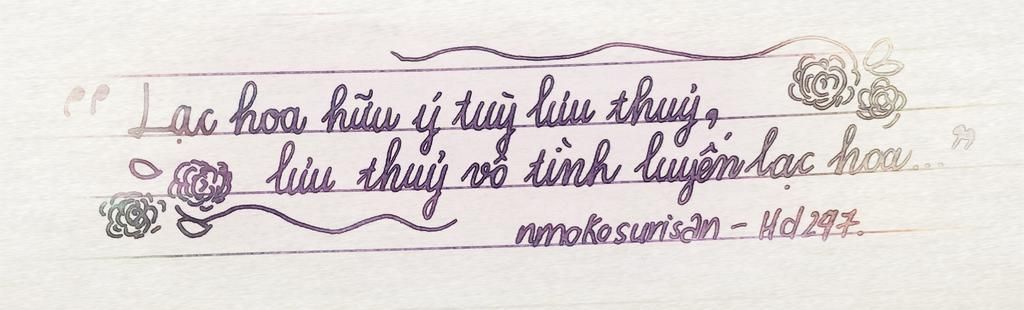 “Lạc hoa hữu ý tuỳ lưu thuỷ,
lưu thuỷ vô tình luyến lạc hoa...”
nmokosurisan - Hd297.